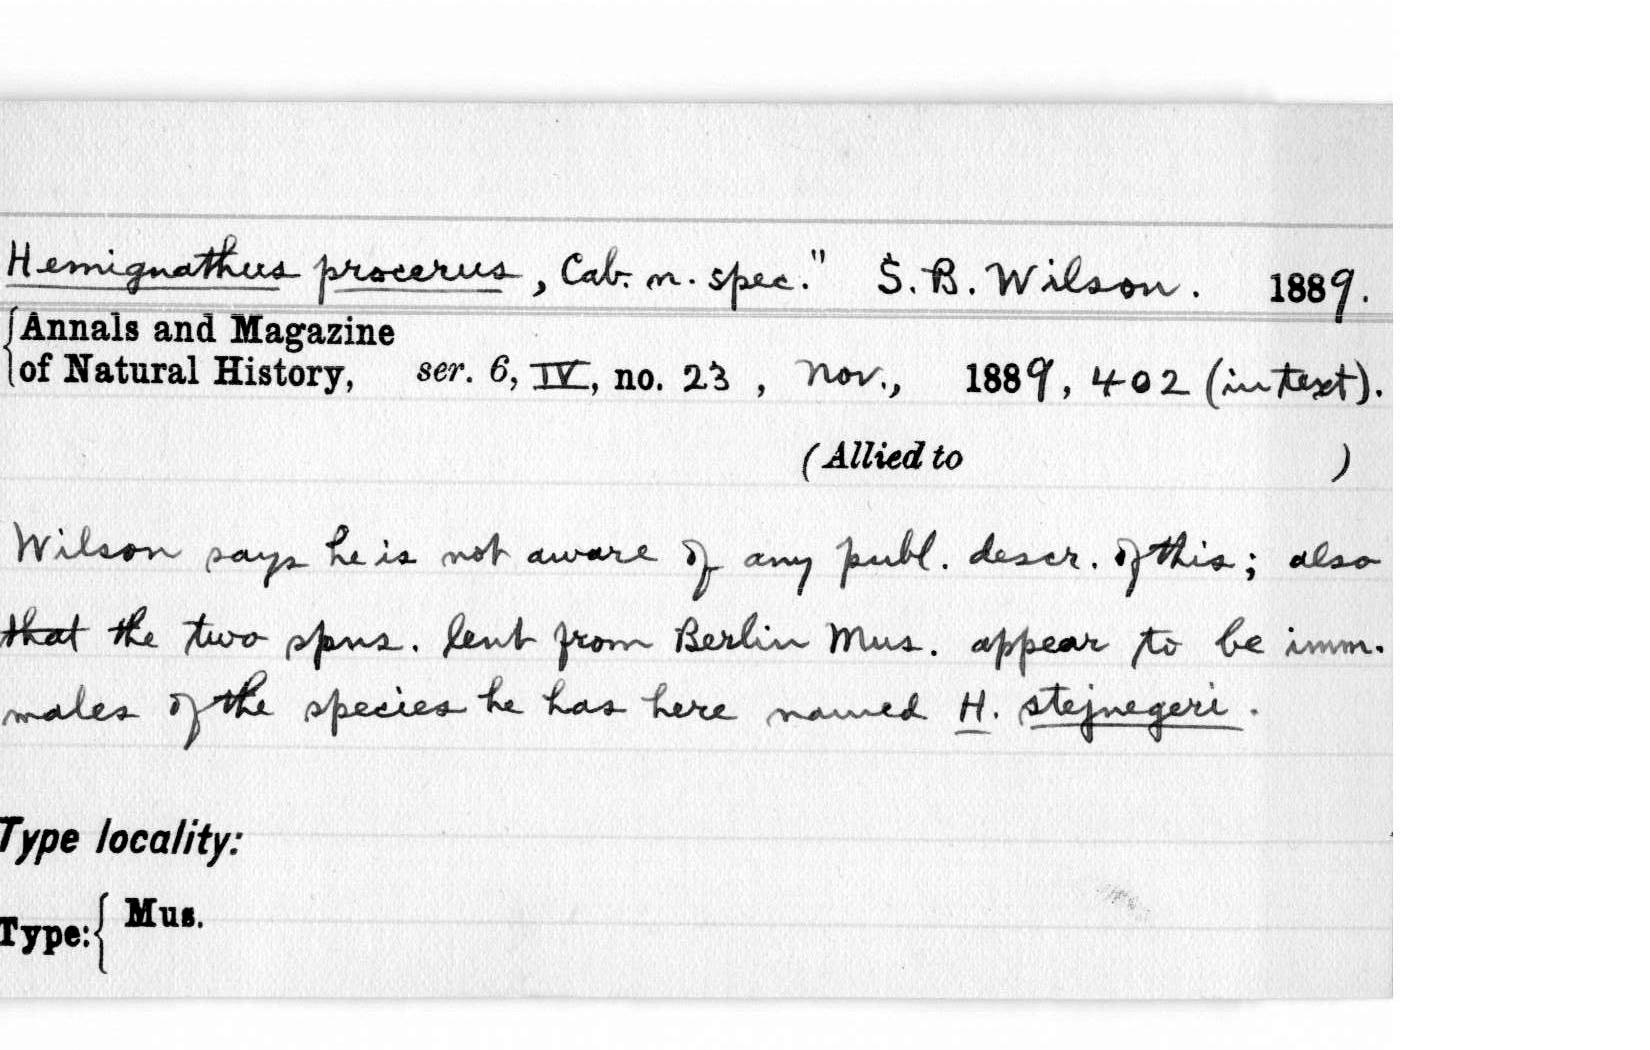 Hemignathus procerus, Cab. n. spec." S. B. Wilson. 1889.
Annals and Magazine
of Natural History, ser. 6, IV, no. 23, Nov., 1889, 402 (in text).
(Allied to )
Wilson says he is not aware of any publ. descr. of this; also
that the two spns. lent from Berlin Mus. appear to be imm.
males of the species he has here named H. stejnegeri.
Type locality:
Type: { Mus.